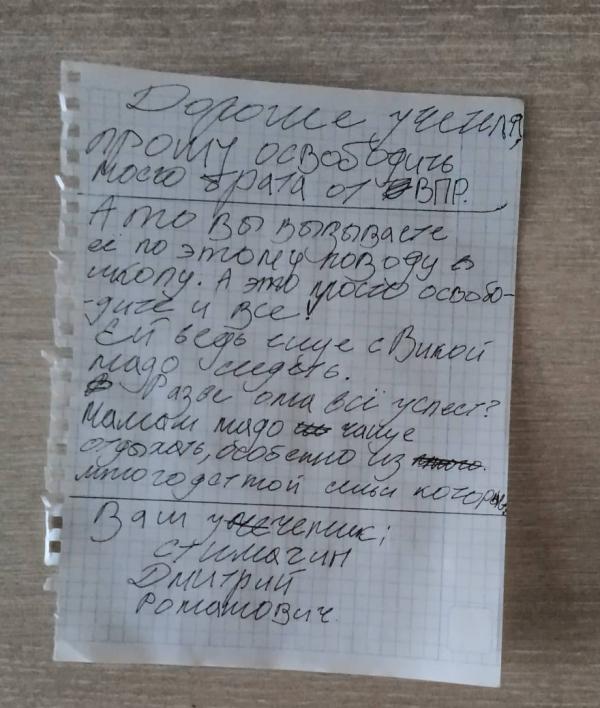 Дорогие учетля,
прошу освободить
моего брата от ВПР.
А то вы вызываете
её по этому поводу в
школу. А это просто освобо-
-дите и все!
Ей ведь еще с Викой
надо сидеть.
Разве она всё успест?
Мамам надо чаще
отдыхать, особенно из
многодетной семьи которы
Ваш ученик;
Стимагин
Дмитрий
Романович.